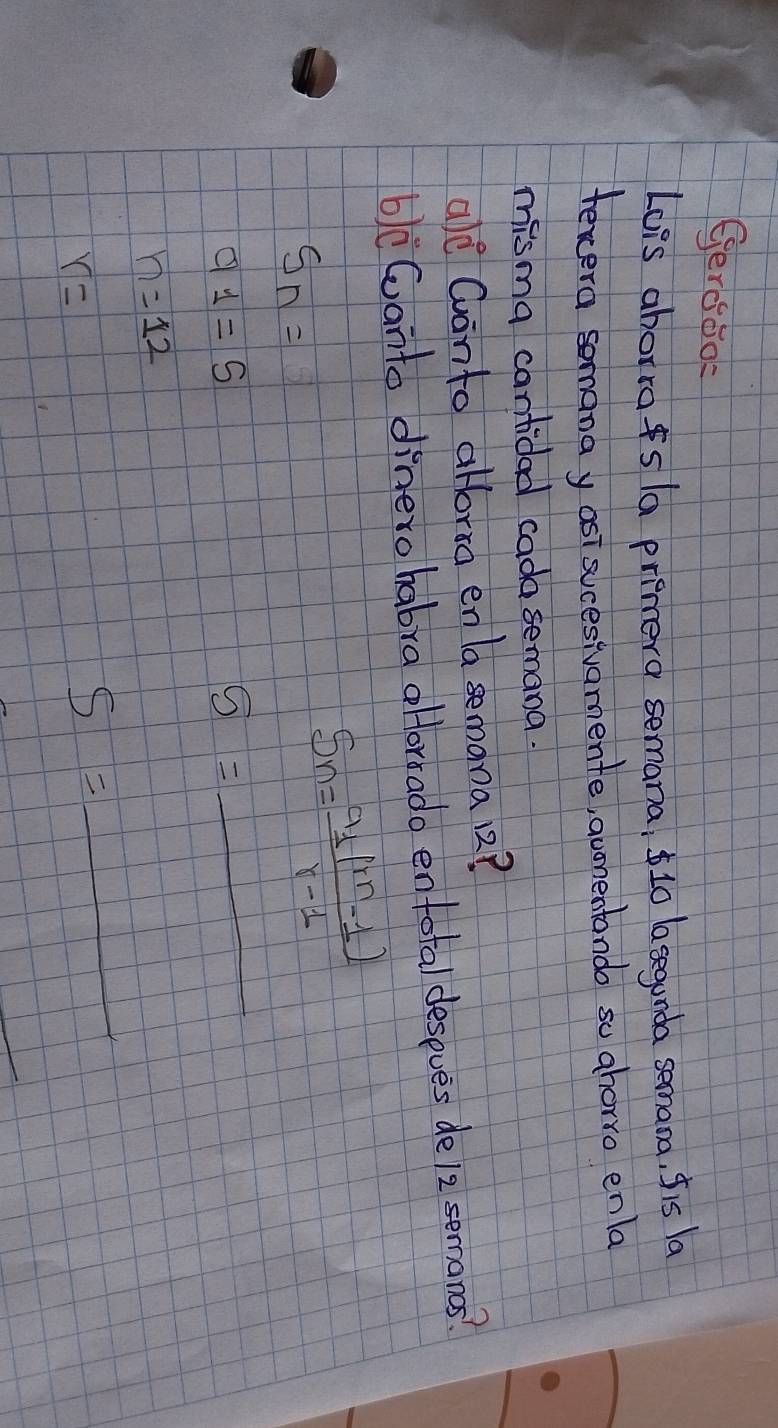 Ejercicio:
Luis ahorra $5 la primera semana, $10 la segunda semana, $15 la
tercera semana y así sucesivamente, aumentando su ahorro en la
misma cantidad cada semana.
a)¿ Cuánto ahorra en la semana 12?
b)¿ Cuánto dinero habra ahorrado en total después de 12 semanas?
Sn = Sn = a1(rn-1) / r-1
a1 = 5 S =
n = 12
r = S =